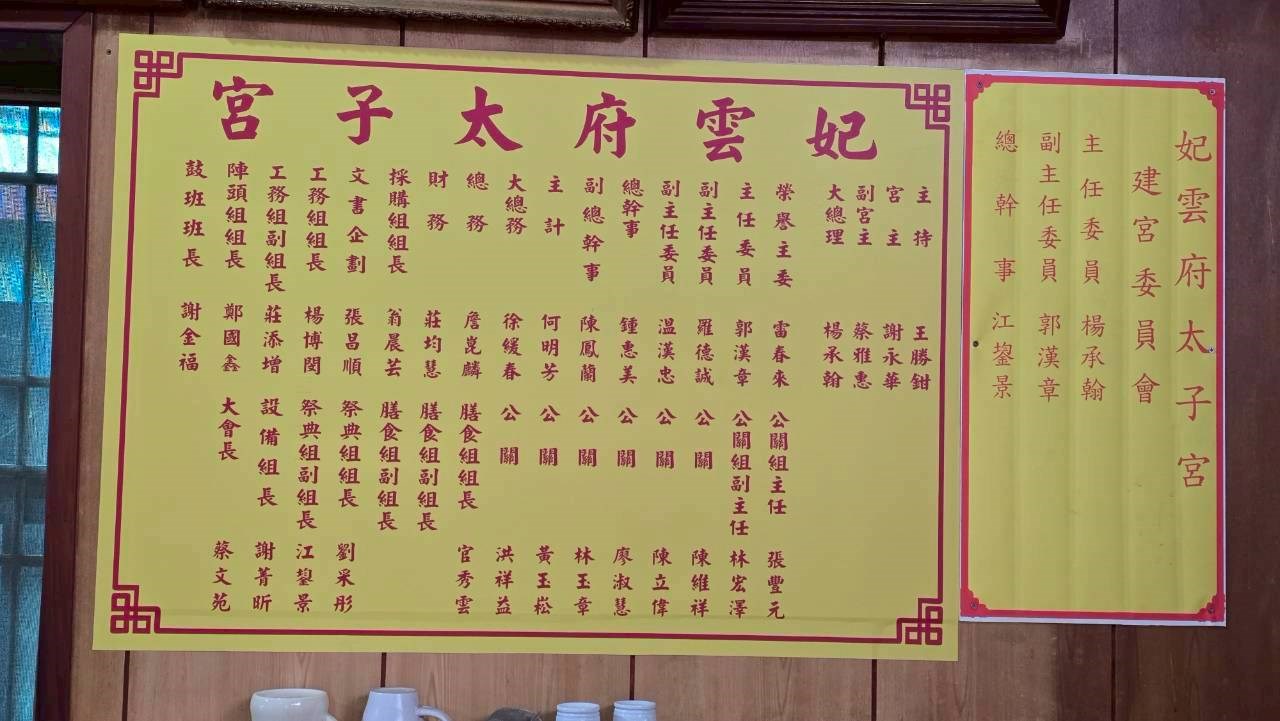 妃雲府太子宮
主持 王勝鉗
宮主 謝永華
副宮主 蔡雅惠
大總理 楊承翰
榮譽主委 雷春來
主任委員 郭漢章
副主任委員 羅德誠
副主任委員 温漢忠
總幹事 鍾惠美
副總幹事 陳鳳蘭
主計 何明芳
大總務 徐緩春
總務 詹崑麟
財務 莊均慧
採購組組長 翁晨芸
文書企劃 張昌順
工務組組長 楊博閔
工務組副組長 莊添增
陣頭組組長 鄭國鑫
鼓班班長 謝金福
公關組主任 張豐元
公關組副主任 林宏澤
公關 陳維祥
公關 陳立偉
公關 廖淑慧
公關 林玉章
公關 黃玉崧
公關 洪祥益
膳食組組長 官秀雲
膳食組副組長
膳食組副組長
祭典組組長 劉采彤
祭典組副組長 江鋆景
設備組長 謝菁昕
大會長 蔡文苑
妃雲府太子宮
建宮委員會
主任委員 楊承翰
副主任委員 郭漢章
總幹事 江鋆景